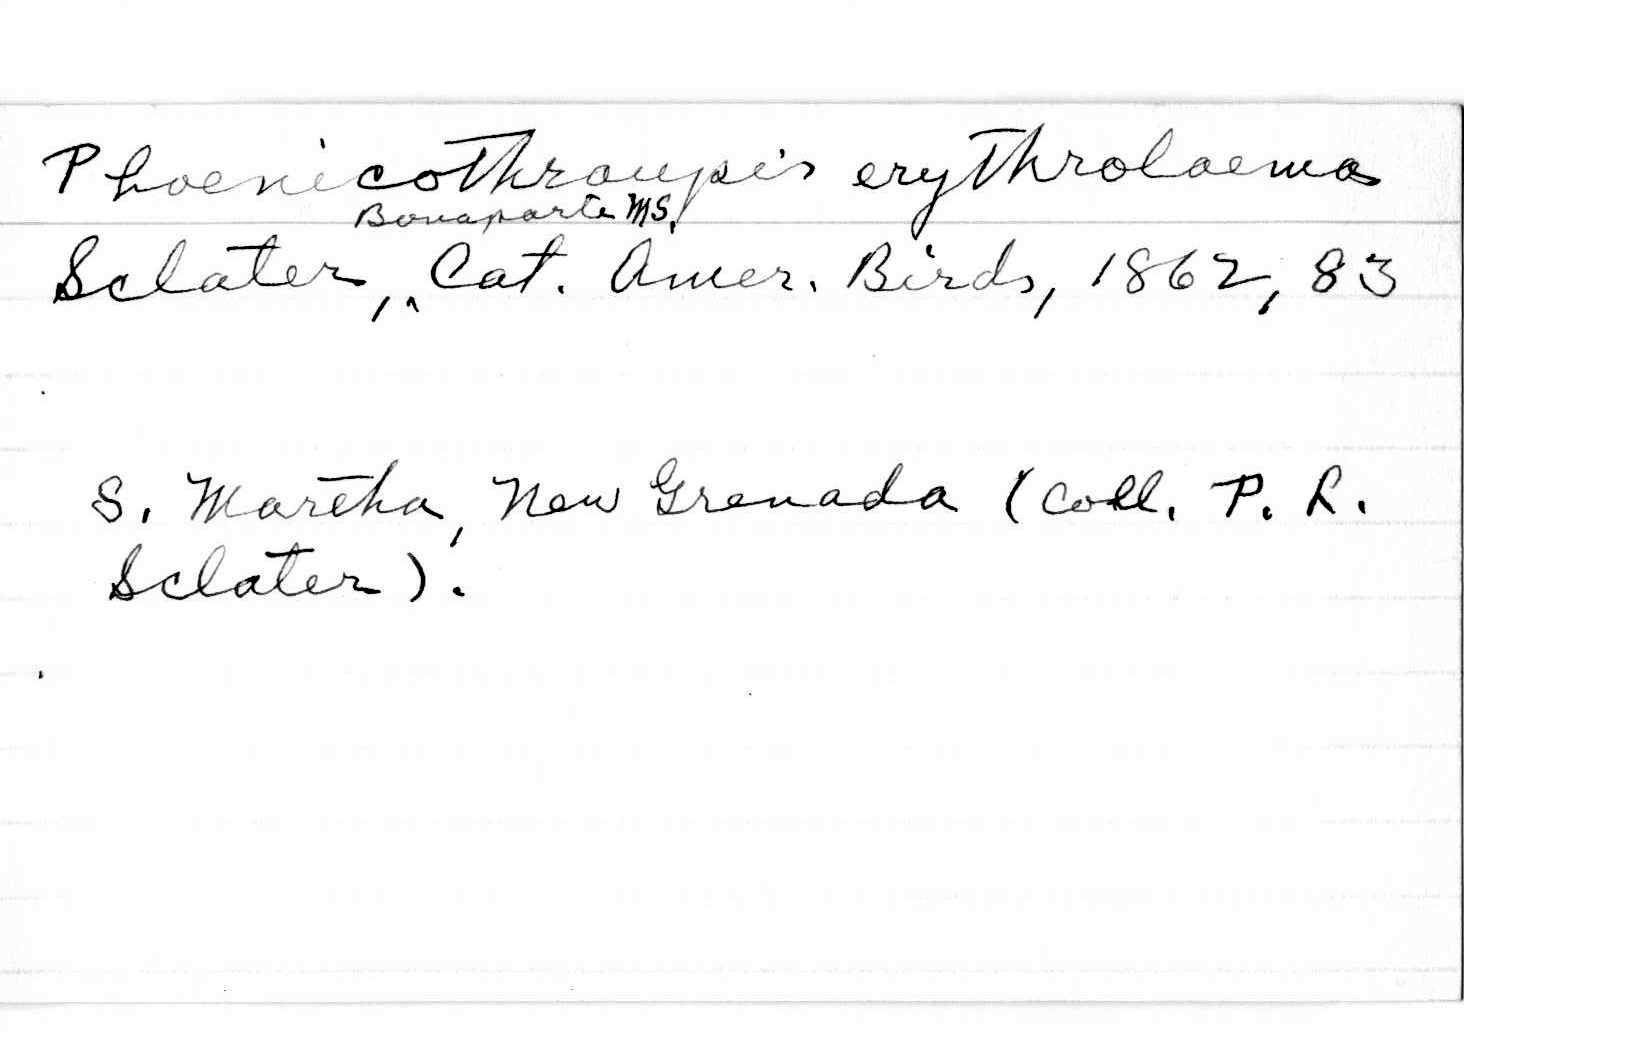 Phoenicothraupis erythrolaema
Bonaparte MS.
Sclater, ^ Cat. Amer. Birds, 1862, 83
S. Martha, New Grenada (coll. P. L.
Sclater).